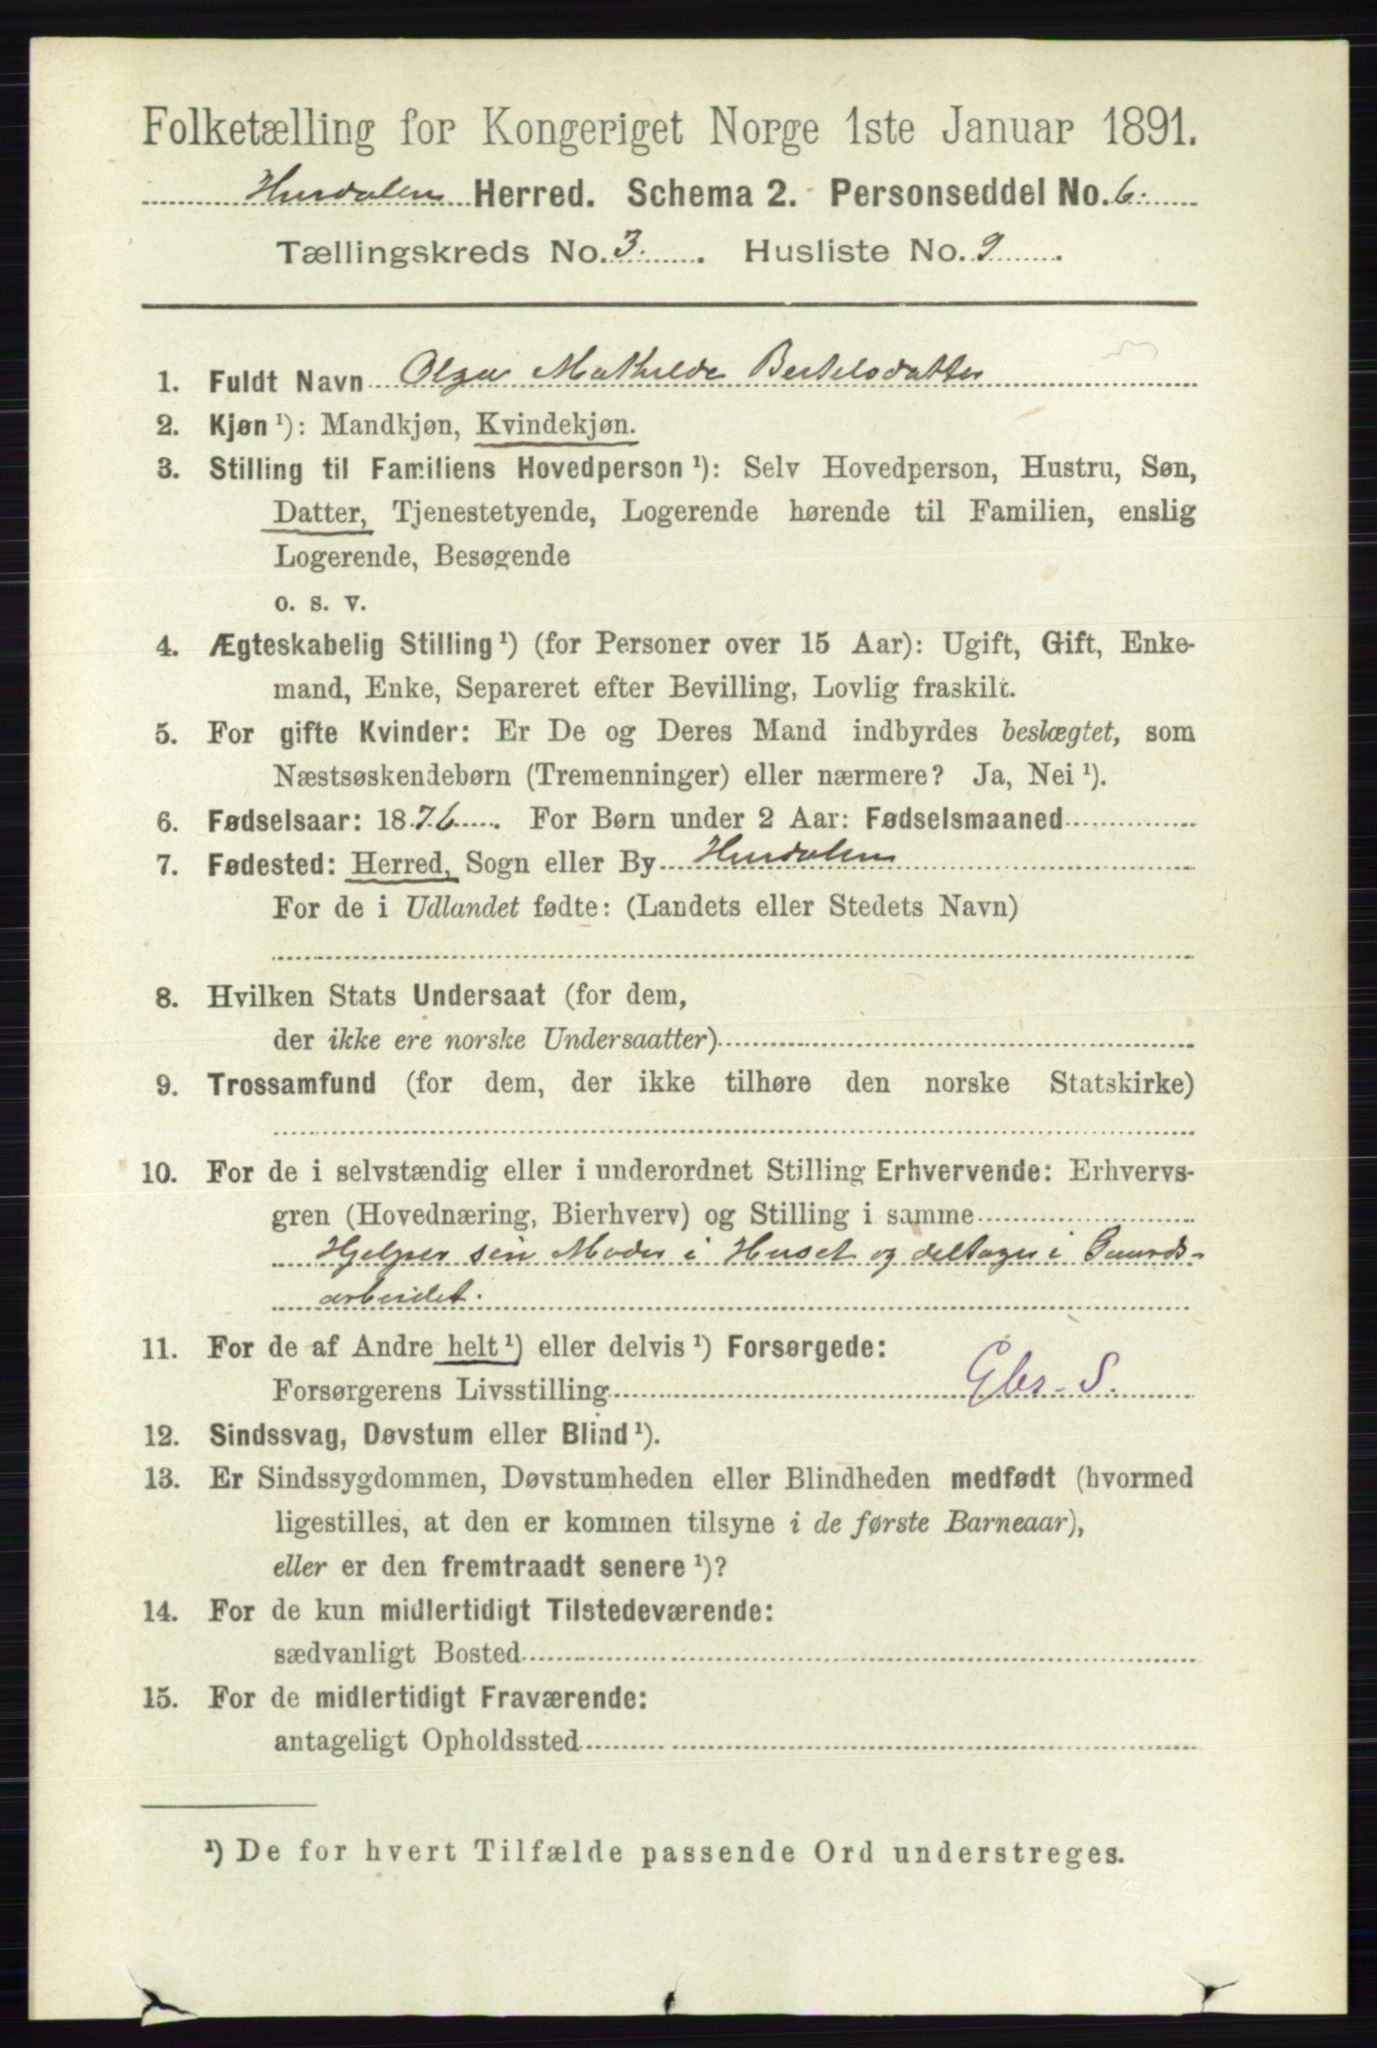 Folketælling for Kongeriget Norge 1ste Januar 1891.
Hurdalen Herred. Schema 2. Personseddel No. 6.
Tællingskreds No. 3. Husliste No. 9.
1. Fuldt Navn Olga Mathilde Bertelsdatter
2. Kjøn ¹): Mandkjøn, Kvindekjøn.
3. Stilling til Familiens Hovedperson ¹): Selv Hovedperson, Hustru, Søn,
Datter, Tjenestetyende, Logerende hørende til Familien, enslig
Logerende, Besøgende
o. s. v.
4. Ægteskabelig Stilling ¹) (for Personer over 15 Aar): Ugift, Gift, Enke-
mand, Enke, Separeret efter Bevilling, Lovlig fraskilt.
5. For gifte Kvinder: Er De og Deres Mand indbyrdes beslægtet, som
Næstsøskendebørn (Tremenninger) eller nærmere? Ja, Nei ¹).
6. Fødselsaar: 1876. For Børn under 2 Aar: Fødselsmaaned
7. Fødested: Herred, Sogn eller By Hurdalen
For de i Udlandet fødte: (Landets eller Stedets Navn)
8. Hvilken Stats Undersaat (for dem,
der ikke ere norske Undersaatter)
9. Trossamfund (for dem, der ikke tilhøre den norske Statskirke)
10. For de i selvstændig eller i underordnet Stilling Erhvervende: Erhvervs-
gren (Hovednæring, Bierhverv) og Stilling i samme
Hjelper sin Moder i Huset og deltager i Gaards-
arbeidet.
11. For de af Andre helt ¹) eller delvis ¹) Forsørgede:
Forsørgerens Livsstilling Gbr. S.
12. Sindssvag, Døvstum eller Blind ¹).
13. Er Sindssygdommen, Døvstumheden eller Blindheden medfødt (hvormed
ligestilles, at den er kommen tilsyne i de første Barneaar),
eller er den fremtraadt senere ¹)?
14. For de kun midlertidigt Tilstedeværende:
sædvanligt Bosted
15. For de midlertidigt Fraværende:
antageligt Opholdssted
¹) De for hvert Tilfælde passende Ord understreges.